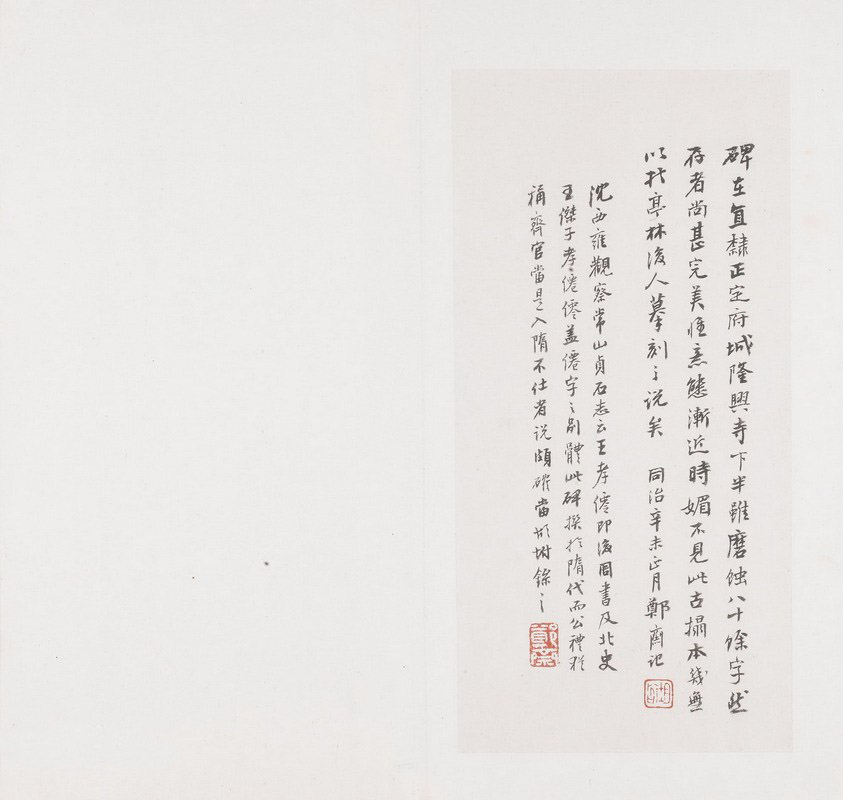 碑在直隸正定府城隆興寺下半雖磨蝕八十餘字然
存者尚甚完美惟意態漸近時媚不見此古搨本幾無
以折亭林後人摹刻之說矣 同治辛未正月鄭齋記
沈西雍觀察常山貞石志云王孝僊即後周書及北史
王傑子孝僊僊蓋僊字之別體此碑撰於隋代而公禮猶
稱齊官當是入隋不仕者說頗確當故坿錄之
鄭齋